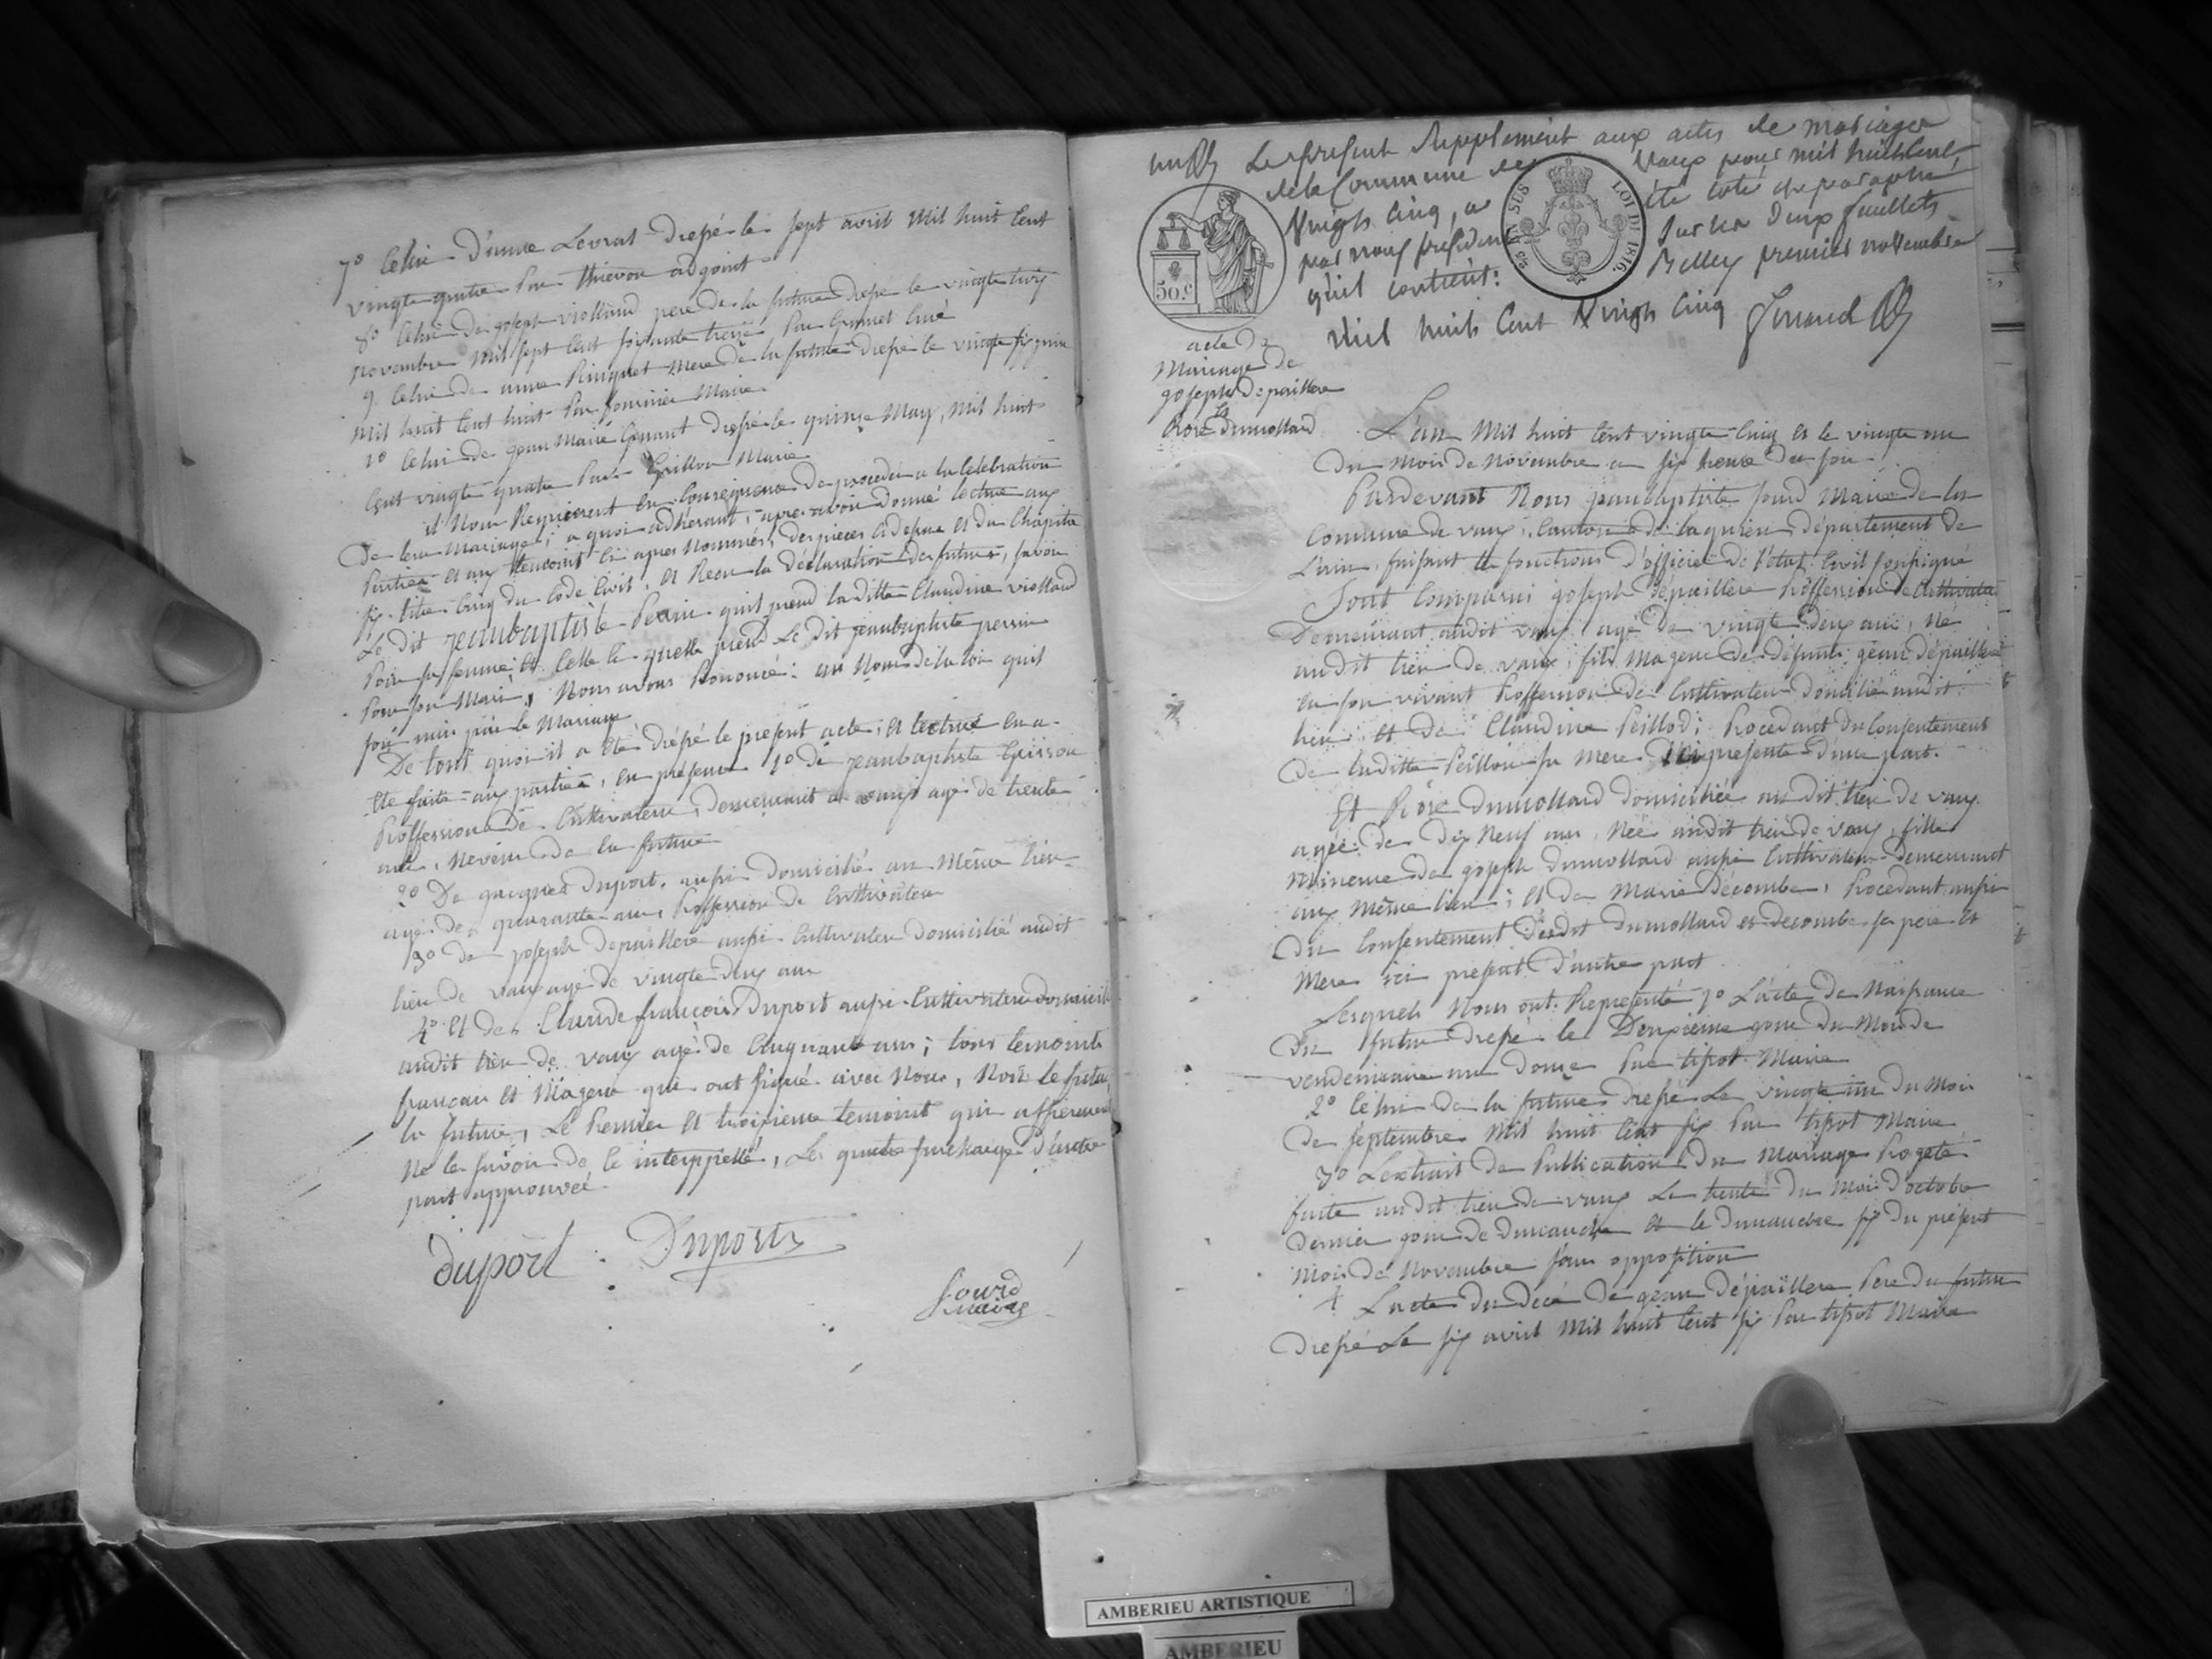 7º Celui d'anne Levrat drepé le sept avril mil huit Cent
vingte quatre Par thievon adgoint
8º Celui de goseph violland pere de la future drepé le vingte trois
novembre mil sept Cent soixante treize Par Curé
9. Celui de anne Pinquet mere de la future drepé le vingte six juin
mil huit Cent huit Par Maire
10 Celui de gean Marie drepé le quinze May, mil huit
Cent vingte quatre Par Grillon Maire
il Nous Requierent En Conseqeuence De proceder a la Celebration
De leur Mariage; a quoi adhérant, apres avoir donné lecture aux
Parties Et aux temoint Ci apres Nommés, des pieces Cidessus Et du Chapitre
six titre Cinq du Code Civil, Et Recu la Déclaration des futurs, savoir
Le dit jeanbaptiste Perrin quil prend laditte Claudine violland
Pour sa femme; Et Celle Ci quelle prend Le dit jeanbaptiste perrin
Pour son Mari, Nous avons Prononcé: au Nom de la loi quil
sont unis par le Mariage
De tout quoi il a Eté drépé le present acte; Et lecture En a
Eté faite aux parties, En présence 1º de jeanbaptiste
Proffession de Cultivateur, demeurant a vaux agé de trente
ans, Neveu de la future
2º De gacques Duport, aupi domicilié au Même lieu
agé de quarante ans, Proffession de Cultivateur
3º de joseph depaillere aupi Cultivateur domicilié audit
lieu de vaux agé de vingte deux ans
4º Et de Claude francois Duport aupi Cultivateur domicilié
audit lieu de vaux agé de Cinquante ans; tous temoints
francais Et Mageur qui ont signé avec Nous, Non le futur
la future, Le Premier Et troisieme temoint qui
Ne le savoir de Ce interppellé, Les quatre surcharge d'autre
part approuvée
duport Duport
Jourd
maire
un Le present Supplément aux actes de mariages
de la Commune de Vaux pour mil huit Cent
Vingt Cinq, a été coté et paraphé
par nous président sur les deux feuillets
qu'il contient: Belley premier novembre
mil huit Cent Vingt Cinq
SUS
LOI DE 1816.
50.c
acte De
Mariage de
goseph depaillere
Et
Rose Dumollard
L'an Mil huit Cent vingte Cinq Et le vingte un
Du mois de Novembre a six heure du soir
Pardevant Nous jeanbaptiste jourd Maire de la
Commune de vaux, Canton de lagnieu département de
L'ain, faisant les fonctions d'officier de l'état Civil soupigné
Sont Comparus joseph dépaillere Proffession de Cultivateur
Demeurant audit vaux agé de vingte deux ans, Né
audit lieu de vaux, fils Mageur de défunt géan dépaillere
En son vivant Proffession de Cultivateur domicilié audit
lieu Et de Claudine Peillod; Procedant du Consentement
De laditte Peillod sa Mere ici presente d'une part.
Et Rose Dumollard domiciliée au dit lieu de vaux
agée de dix Neuf ans, Née audit lieu de vaux, fille
Mineure de goseph dumollard aupi Cultivateur demeurant
aux Même lieu; Et de Marie décombe, Procedant aupi
Du Consentement desdit Dumollard et decombe ses pere Et
Mere ici present d'autre part
Lesquels Nous ont Representé 1º L'acte de Naipance
Du futur drepé le Deuxieme jour du Mois de
vendemiaire an douze Par tipot Maire
2º Celui de la future drepé Le vingte un du Mois
De septembre Mil huit Cent six Par tipot Maire
3º L'extrait de Publication du Mariage Progeté
faite audit lieu de vaux Le trente du Mois d'octobre
dernier jour de dimanche Et le dimanche six du présent
Mois de Novembre sans oppoption
4 L'acte du décé de géan dépaillere Pere du futur
Drepé Le six avril Mil huit Cent six Par tipot Maire
AMBERIEU ARTISTIQUE
AMBERIEU